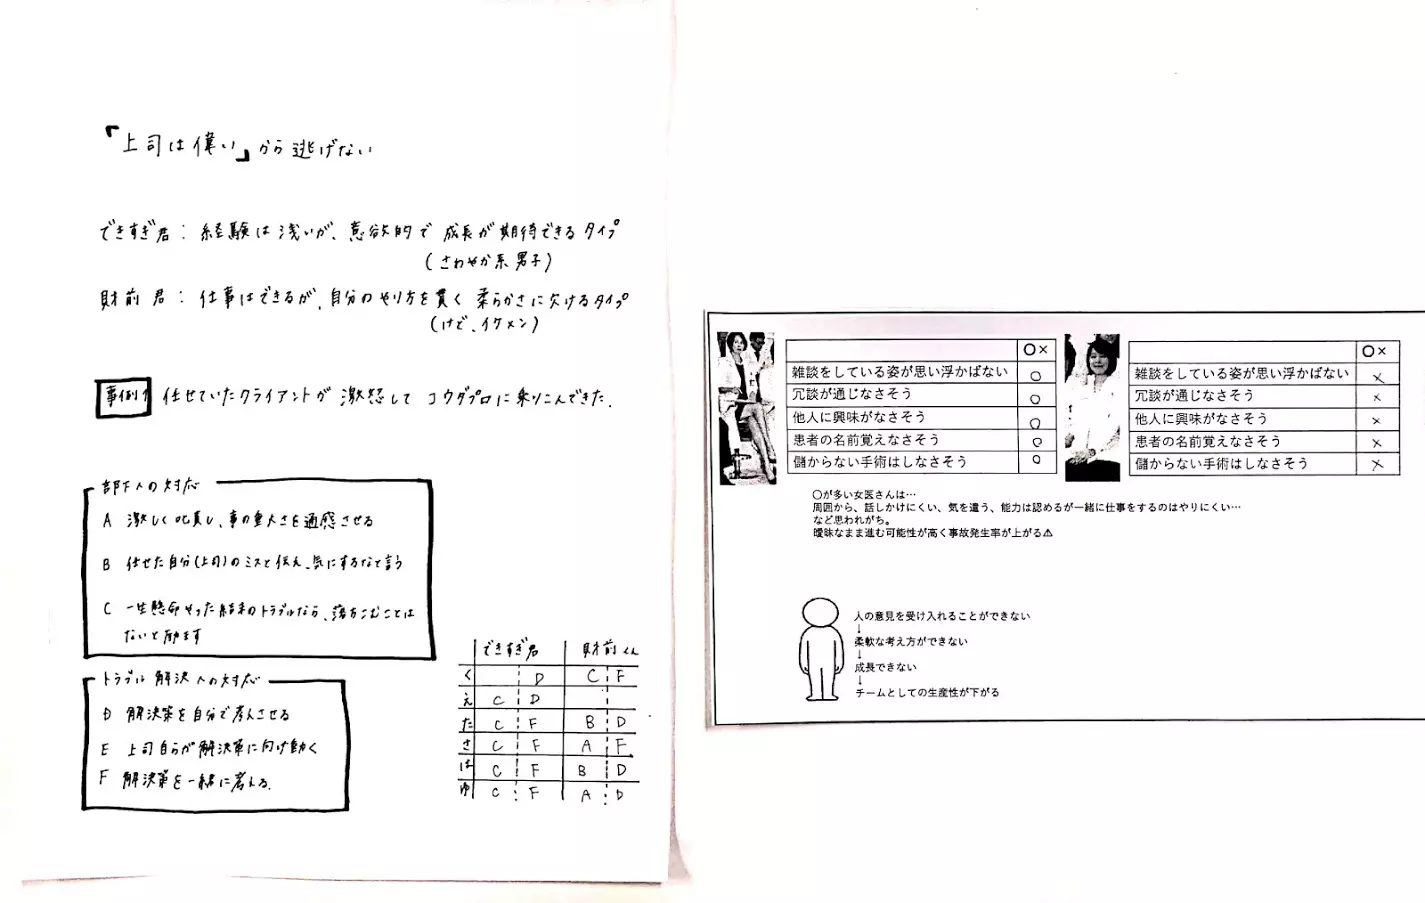 「上司は偉い」から逃げない
できすぎ君：経験は浅いが、意欲的で成長が期待できるタイプ
(さわやか系男子)
財前君：仕事はできるが、自分のやり方を貫く柔らかさに欠けるタイプ
(けど、イケメン)
事例1 任せていたクライアントが激怒してコウダプロに乗りこんできた.
部下への対応
A 激しく叱責し、事の重大さを通感させる
B 任せた自分(上司)のミスと伝え、気にするなと言う
C 一生懸命やった結果のトラブルなら、落ちこむことは
ないと励ます
トラブル解決への対応
D 解決策を自分で考えさせる
E 上司自らが解決策に向け動く
F 解決策を一緒に考える.
できすぎ君 財前くん
く D C F
え C D
た C F B D
さ C F A F
は C F B D
ゆ C F A D
○×
雑談をしている姿が思い浮かばない ○
冗談が通じなさそう ○
他人に興味がなさそう ○
患者の名前覚えなさそう ○
儲からない手術はしなさそう ○
○×
雑談をしている姿が思い浮かばない ×
冗談が通じなさそう ×
他人に興味がなさそう ×
患者の名前覚えなさそう ×
儲からない手術はしなさそう ×
○が多い女医さんは…
周囲から、話しかけにくい、気を遣う、能力は認めるが一緒に仕事をするのはやりにくい…
など思われがち。
曖昧なまま進む可能性が高く事故発生率が上がる⚠
人の意見を受け入れることができない
↓
柔軟な考え方ができない
↓
成長できない
↓
チームとしての生産性が下がる